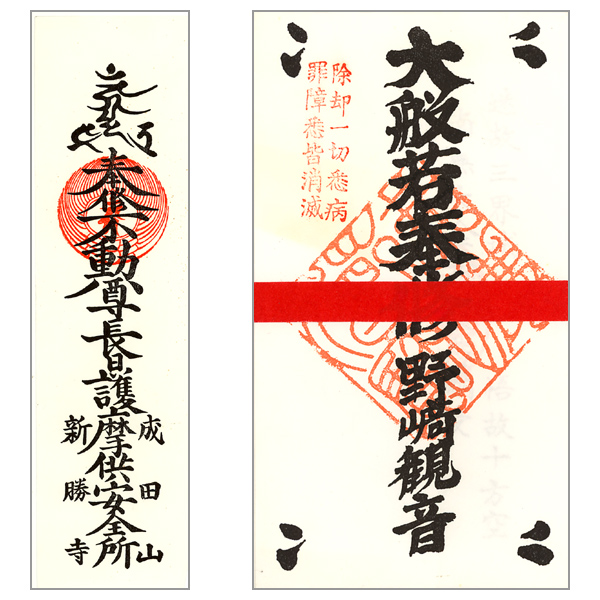 奉修不動尊長日護摩供安全所
成田山
新勝寺
大般若奉修野﨑観音
除却一切悉病
罪障悉皆消滅